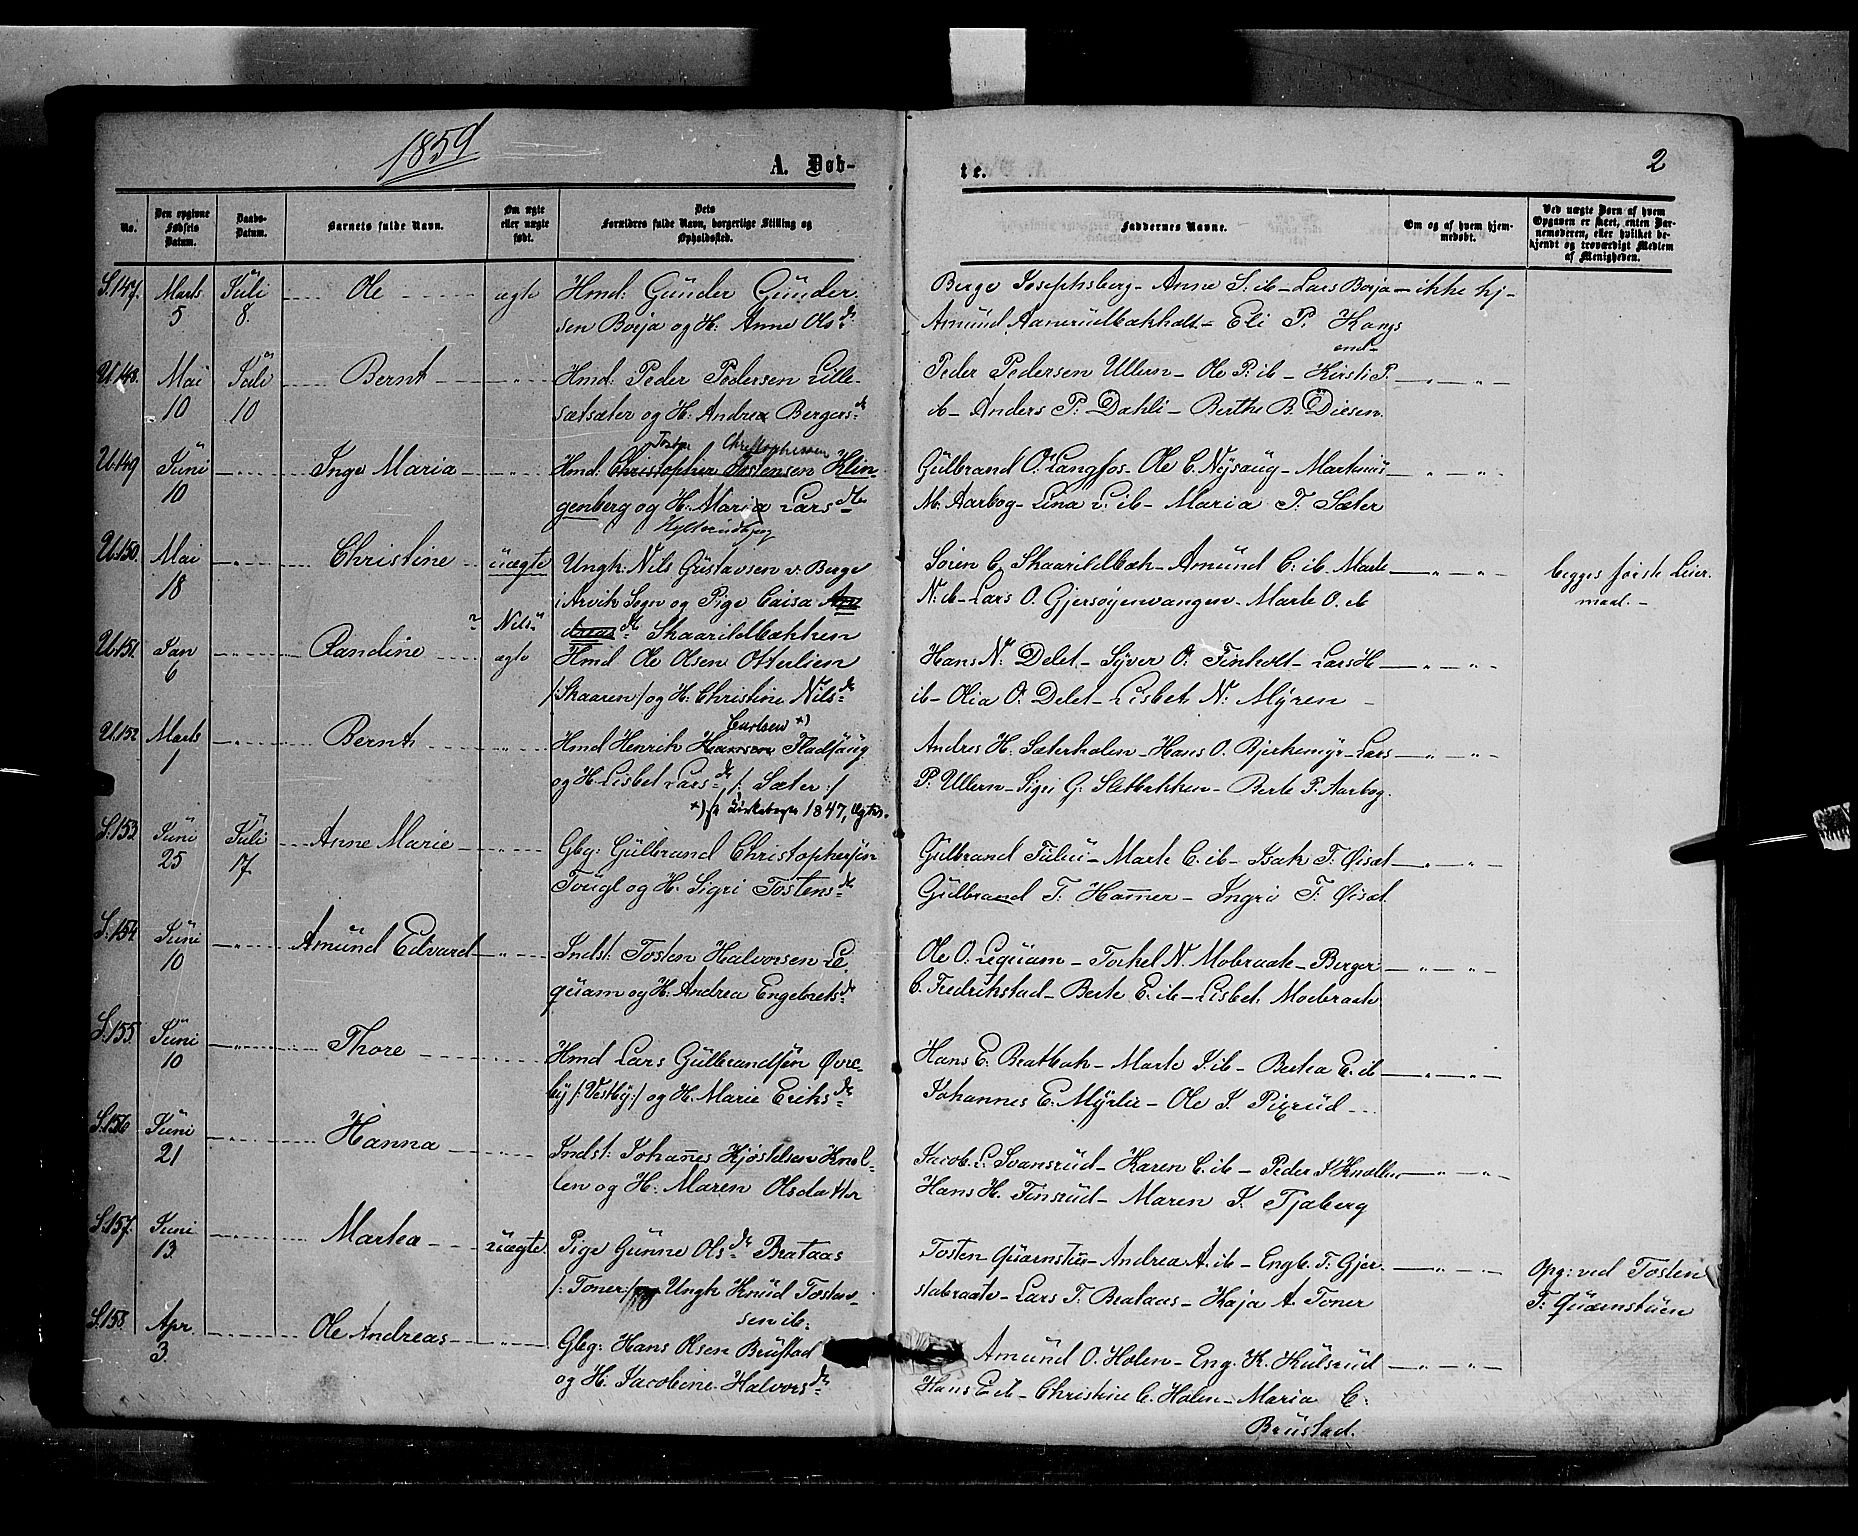 1859
A. Døb-
te.
2
No.
Den opgivne Fødsels Datum.
Daabs-Datum.
Barnets fulde Navn.
Om ægte eller uægte født.
Dets Forældres fulde Navn, borgerlige Stilling og Opholdssted.
Faddernes Navne.
Om og af hvem hjemmedøbt.
Ved uægte Børn af hvem Opgaven er skeet, enten Barnemoderen, eller hvilket bekjendt og troværdigt Medlem af Menigheden.
S. 147. Marts 5 Juli 8. Ole ægte Hmd: Gunder Gunder-
sen Borja og H: Anne Olsdr
Berge Josephsberg - Anne S. ib - Lars Borja - ikke hj-
Amund Aamrudbækholt - Eli P. Hangs
end-
U. 148. Mai 10 Juli 10 Bernt - " - Hmd: Peder Pedersen Lille-
sætsæter og H: Andrea Bergersdr
Peder Pedersen Ullern - Ole P. ib - Kirsti P. - " - " -
ib - Anders P. Dahli - Berthe B. Diesen.
Tosten Christophersen
U. 149 Juni 10 - " - Inge Maria - " - Hmd: Christopher Tostensen Klin-
genberg og H: Maria Larsdtr
Gulbrand O. Langfos - Ole C. Nysaug - Marthinus - " - " -
M. Aarbog - Lina L. ib - Maria T. Sæter
U. 150. Mai 18 - " - Christine uægte Ungk: Nils Gustavsen v. Berge
i Arvik Sogn og Pige Caisa An-
Nils-
dreasdtr Skaarildbækken
Søren C. Skaarildbæk - Amund C. ib. Marte - " - " -
N. ib - Lars O. Gjersøyenvangen - Marte O. ib
begges første Leier-
maal. -
U. 151. Jan 6 - " - Randine ægte Hmd Ole Olsen Otterlien
/: Skaaren :/ og H: Christine Nilsdr
Hans N. Delet - Syver O. Finholt - Lars H - " - " -
ib - Olia O. Delet - Lisbet N. Myren -
Carlsen x)
U. 152 Marts 1 - " - Bernt - " - Hmd Henrik Hansen Fladsaug
og H. Lisbet Larsdr /: Sæter :/
x) Kirkebogen 1847, Ægtev.
Andres H. Sæterholen - Hans O. Bjerkemyr - Lars - " - " -
P. Ullern - Sigri G. Sletbækken - Berte P. Aarbog.
S. 153. Juni 25 Juli 17. Anne Marie - " - Gbg: Gulbrand Christophersen
Fougl og H. Sigri Tostensdr
Gulbrand Fulu - Marte C. ib - Isak T. Øisæt - " - " -
Gulbrand T. Hammer - Ingri T. Øisæt.
S. 154 Juni 10 - " - Amund Edvard - " - Indst: Tosten Halvorsen Le-
quam og H. Andrea Engebretsdr
Ole O. Lequam - Torkel N. Mobraate - Berger - " - " -
C. Fredrikstad - Berte E. ib - Lisbet Mobraate
S. 155. Juni 10 - " - Thore - " - Hmd Lars Gulbrandsen Øvre-
by /: Vestby :/ og H. Marie Eriksdr
Hans E. Bratbak - Marte J. ib - Bertea E. ib - " - " -
Johannes E. Myrlie - Ole J. Pigrud -
S. 156 Juni 21 - " - Hanna - " - Indst: Johannes Kjøstelsen Knol-
len og H. Maren Olsdatter
Jacob L. Svansrud - Karen C. ib - Peder J Knollen - " - " -
Hans H. Finsrud - Maren J. Tjaberg
S. 157. Juni 13. - " - Martea uægte. Pige Gunne Olsdr Brataas
/: Toner :/ og Ungk Knud Tosten-
sen ib.
Tosten Quarnstue - Andrea A. ib - Engb. T. Gjer- - " - " -
stabraate - Lars T. Brataas - Kaja A. Toner
Opg: ved Tosten
T. Quarnstuen
S. 158 Apr. 3. - " - Ole Andreas - " - Gbg: Hans Olsen Brustad
og H. Jacobine Halvorsdr
Amund O. Holen - Eng. K. Kulsrud - " - " -
Hans E. ib - Christine C. Holen - Maria C.
Brustad.